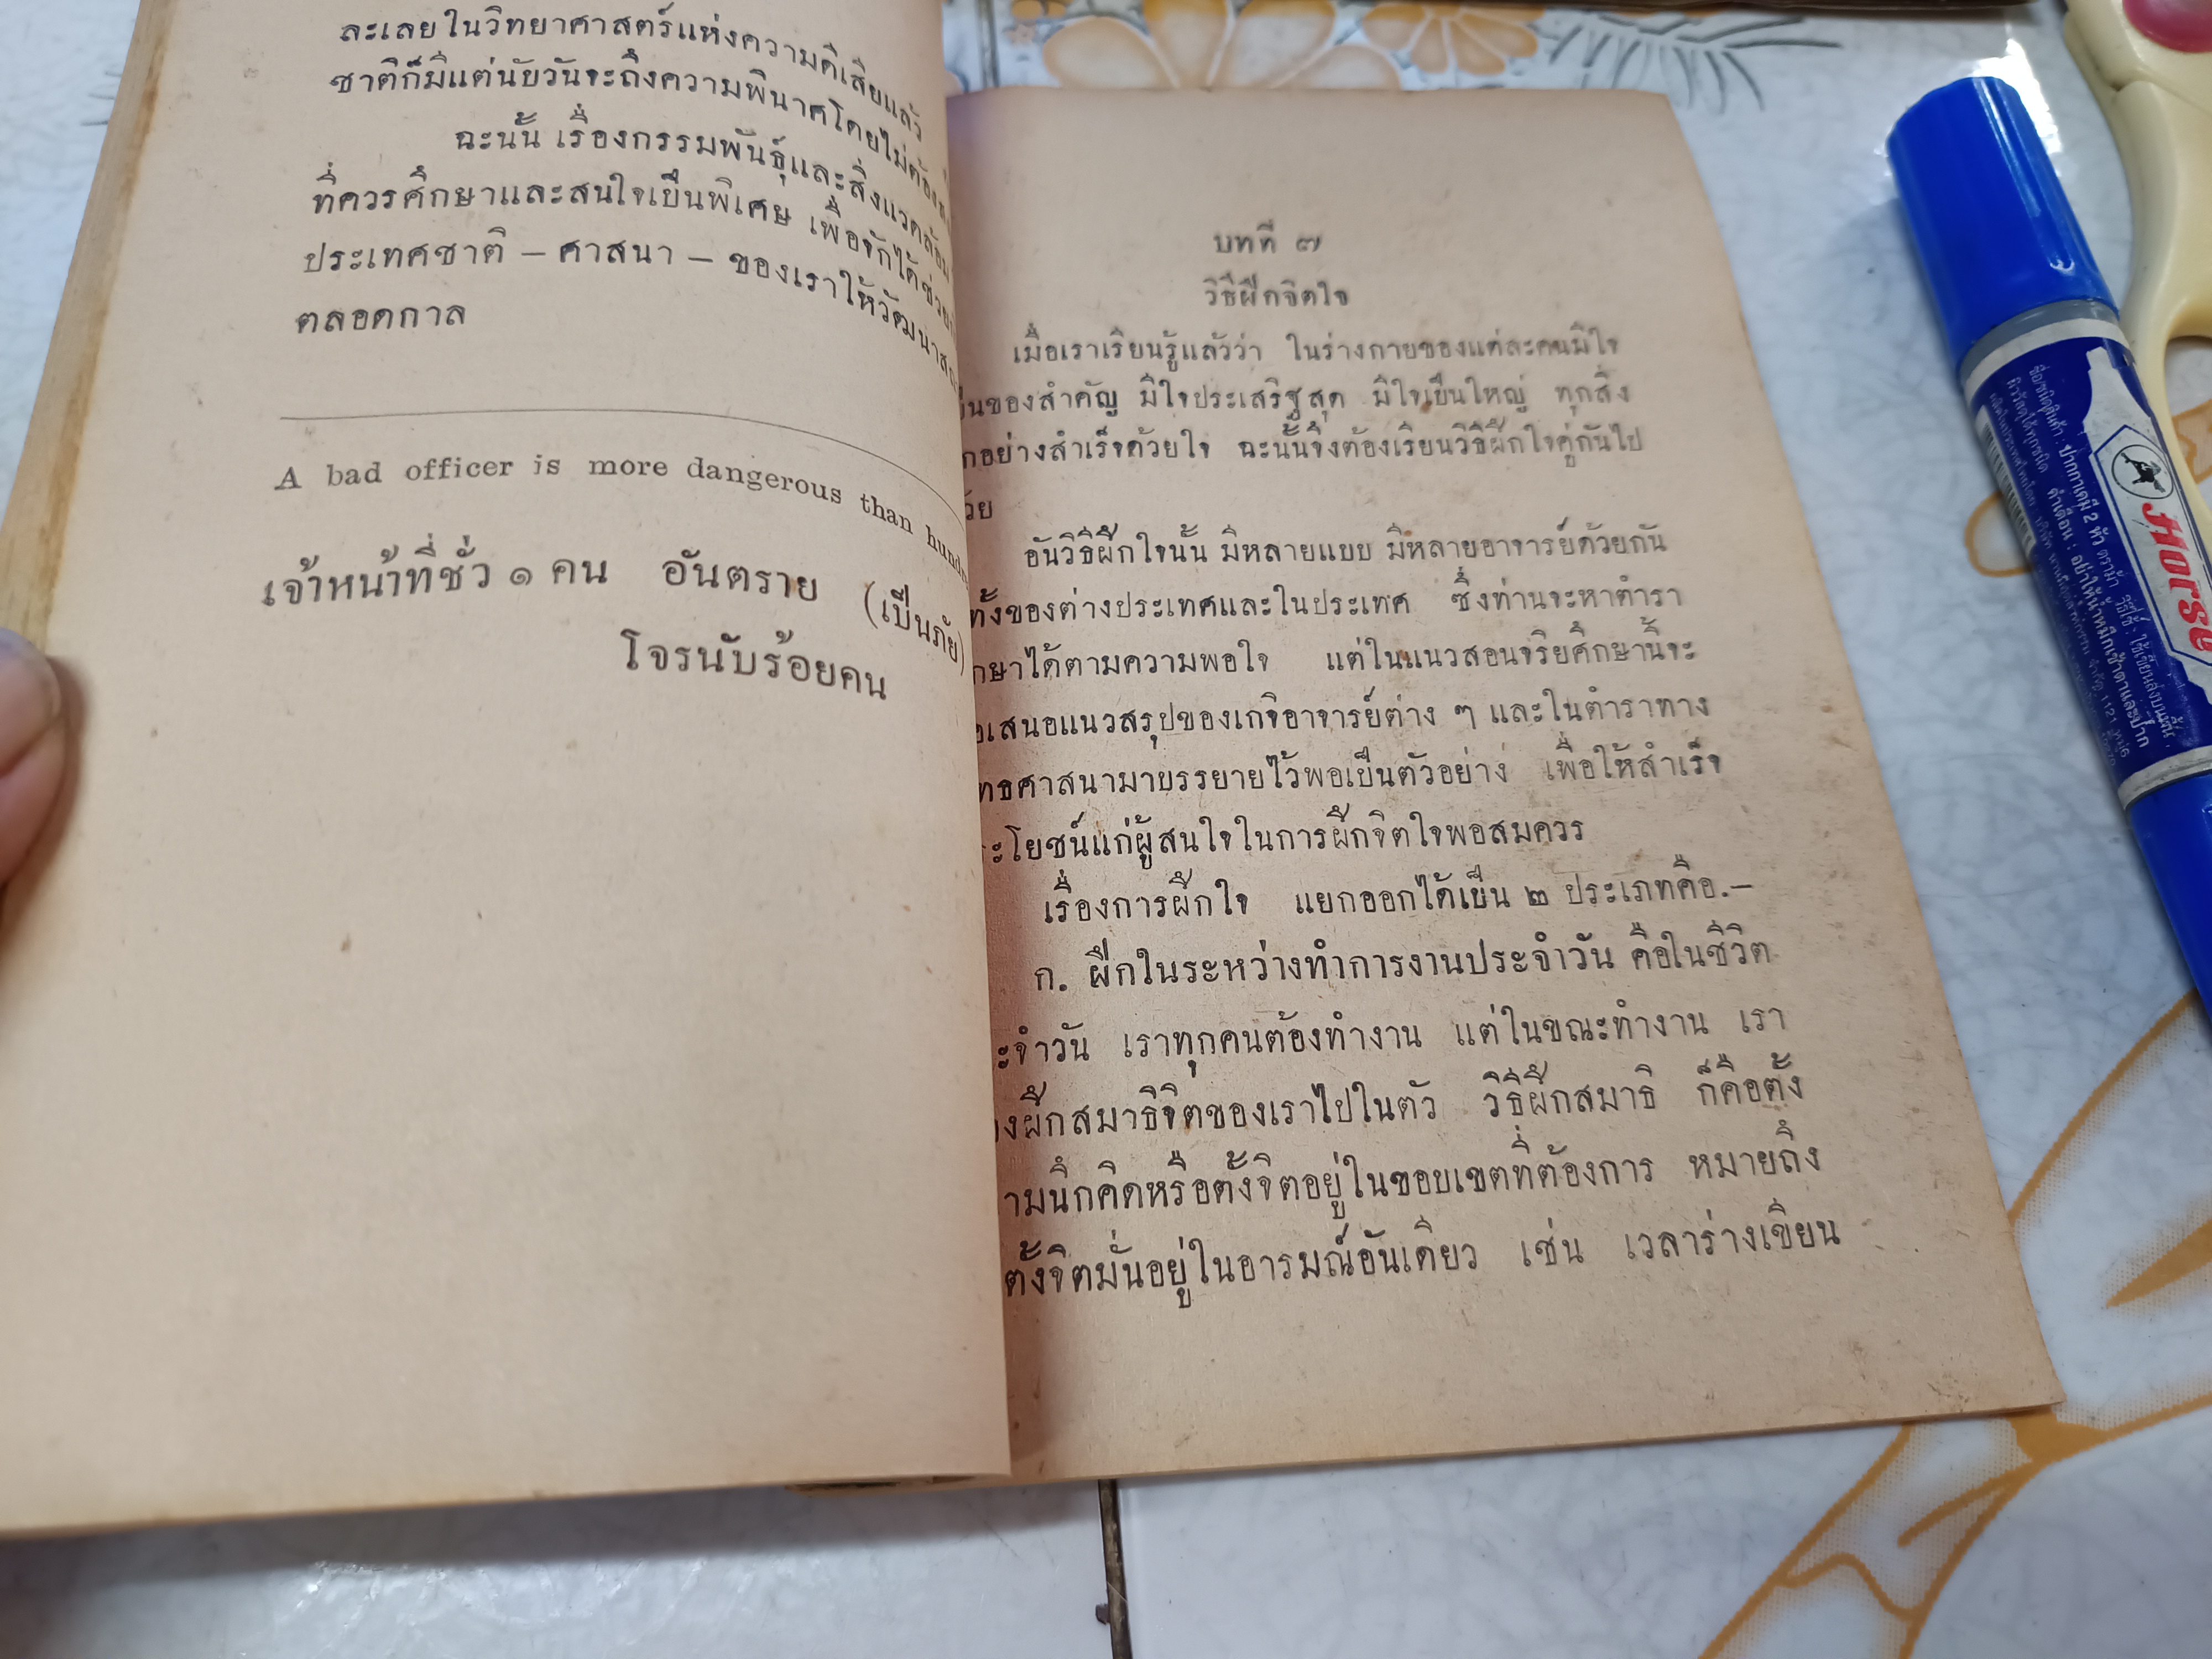 ละเลยในวิทยาศาสตร์แห่งความคิเสียแล้ว
ชาติก็มีแต่นับวันจะถึงความพินาศโดยไม่ต้อง
ฉะนั้น เรื่องกรรมพันธุ์และสิ่งแวดล้อม
ที่ควรศึกษาและสนใจเป็นพิเศษ เพื่อจักได้ช่วย
ประเทศชาติ – ศาสนา – ของเราให้วัฒนา
ตลอดกาล
A bad officer is more dangerous than
เจ้าหน้าที่ชั่ว ๑ คน อันตราย (เป็นภัย)
โจรนับร้อยคน
บทที่ ๗
วิธีฝึกจิตใจ
เมื่อเราเรียนรู้แล้วว่า ในร่างกายของแต่ละคนมีใจ
ป็นของสำคัญ มีใจประเสริฐสุด มีใจเป็นใหญ่ ทุกสิ่ง
กอย่างสำเร็จด้วยใจ ฉะนั้นจึงต้องเรียนวิธีฝึกใจคู่กันไป
วย
อันวิธีฝึกใจนั้น มีหลายแบบ มีหลายอาจารย์ด้วยกัน
ทั้งของต่างประเทศและในประเทศ ซึ่งท่านจะหาตำรา
กษาได้ตามความพอใจ แต่ในแนวสอนจริยศึกษานี้จะ
อเสนอแนวสรุปของเกจิอาจารย์ต่าง ๆ และในตำราทาง
ทธศาสนามาบรรยายไว้พอเป็นตัวอย่าง เพื่อให้สำเร็จ
ะโยชน์แก่ผู้สนใจในการฝึกจิตใจพอสมควร
เรื่องการฝึกใจ แยกออกได้เป็น ๒ ประเภทคือ.–
ก. ฝึกในระหว่างทำการงานประจำวัน คือในชีวิต
ะจำวัน เราทุกคนต้องทำงาน แต่ในขณะทำงาน เรา
งฝึกสมาธิจิตของเราไปในตัว วิธีฝึกสมาธิ ก็คือตั้ง
ามนึกคิดหรือตั้งจิตอยู่ในขอบเขตที่ต้องการ หมายถึง
ตั้งจิตมั่นอยู่ในอารมณ์อันเดียว เช่น เวลาร่างเขียน
Horse
ชื่อ/ชนิดสินค้า : ปากกาเคมี 2 หัว ตราม้า
คำเตือน : อย่าให้น้ำหมึกเข้าตาและปาก